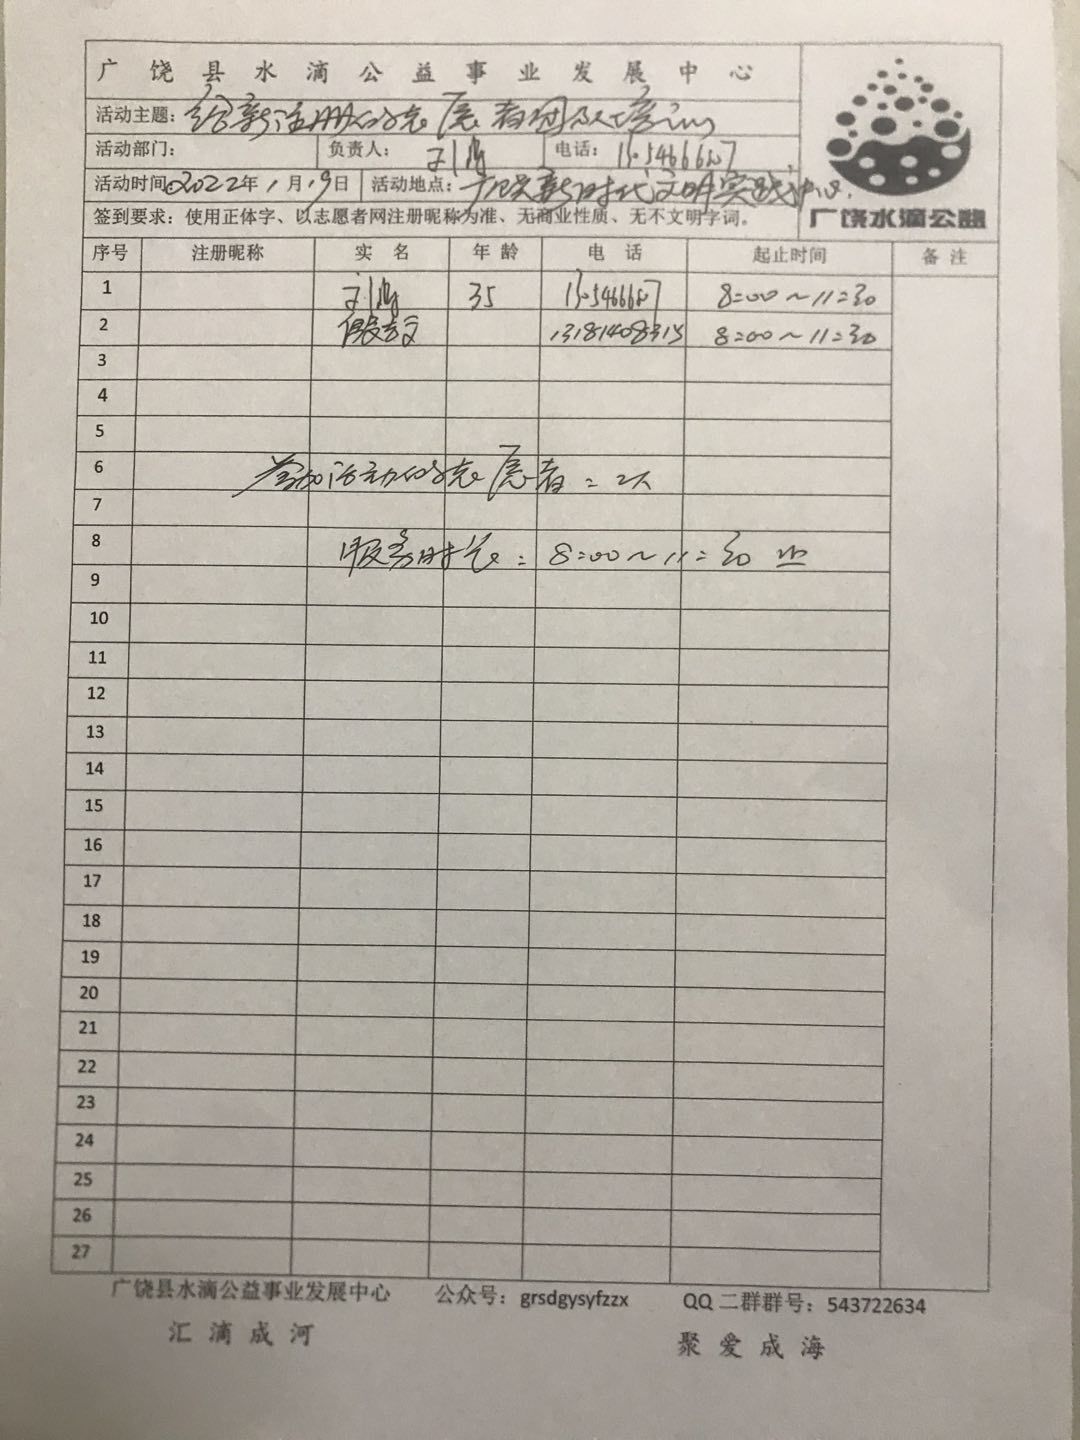 广饶县水滴公益事业发展中心
活动主题：给新注册的志愿者团队培训
活动部门： 负责人： 电话：
活动时间2022年1月19日 活动地点：广饶新时代文明实践中心.
签到要求：使用正体字、以志愿者网注册昵称为准、无商业性质、无不文明字词。
广饶水滴公益
序号 注册昵称 实名 年龄 电话 起止时间 备注
1 35 8:00～11:30
2 13181408315 8:00～11:30
3
4
5
6 参加活动的志愿者：2人
7
8 服务时长：8:00～11:30
9
10
11
12
13
14
15
16
17
18
19
20
21
22
23
24
25
26
27
广饶县水滴公益事业发展中心 公众号：grsdgysyfzzx QQ二群群号：543722634
汇滴成河 聚爱成海